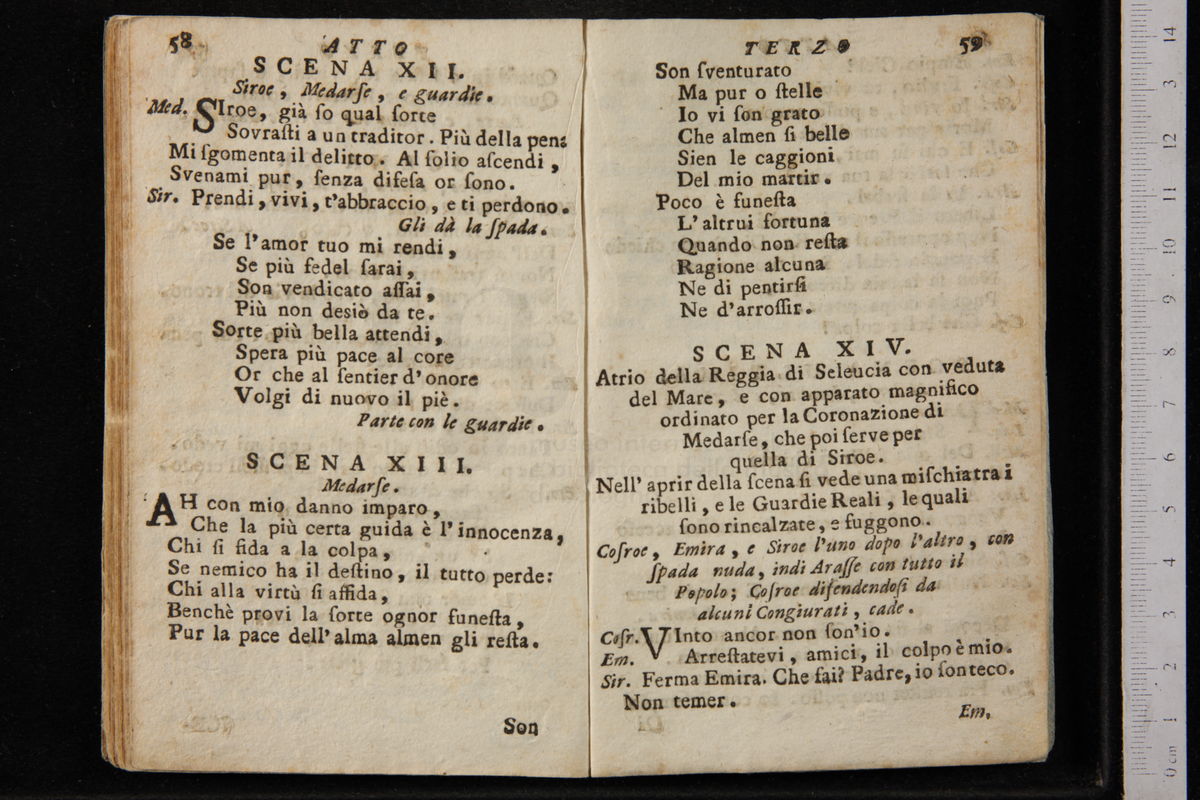 58 ATTO
SCENA XII.
Siroe, Medarſe, e guardie.
Med. SIroe, già ſo qual ſorte
Sovraſti a un traditor. Più della pena
Mi ſgomenta il delitto. Al ſolio aſcendi,
Svenami pur, ſenza difeſa or ſono.
Sir. Prendi, vivi, t'abbraccio, e ti perdono.
Gli dà la ſpada.
Se l'amor tuo mi rendi,
Se più fedel ſarai,
Son vendicato aſſai,
Più non desiò da te.
Sorte più bella attendi,
Spera più pace al core
Or che al ſentier d'onore
Volgi di nuovo il piè.
Parte con le guardie.
SCENA XIII.
Medarſe.
AH con mio danno imparo,
Che la più certa guida è l'innocenza,
Chi ſi fida a la colpa,
Se nemico ha il deſtino, il tutto perde:
Chi alla virtù ſi affida,
Benchè provi la ſorte ognor funeſta,
Pur la pace dell'alma almen gli reſta.
Son
TERZO 59
Son ſventurato
Ma pur o ſtelle
Io vi ſon grato
Che almen ſi belle
Sien le caggioni
Del mio martir.
Poco è funeſta
L'altrui fortuna
Quando non reſta
Ragione alcuna
Ne di pentirſi
Ne d'arroſſir.
SCENA XIV.
Atrio della Reggia di Seleucia con veduta
del Mare, e con apparato magnifico
ordinato per la Coronazione di
Medarſe, che poi ſerve per
quella di Siroe.
Nell'aprir della ſcena ſi vede una miſchia tra i
ribelli, e le Guardie Reali, le quali
ſono rincalzate, e fuggono.
Coſroe, Emira, e Siroe l'uno dopo l'altro, con
ſpada nuda, indi Araſſe con tutto il
Popolo; Coſroe difendendoſi da
alcuni Congiurati, cade.
Coſr. VInto ancor non ſon'io.
Em. Arreſtatevi, amici, il colpo è mio.
Sir. Ferma Emira. Che fai? Padre, io ſon teco.
Non temer.
Em.
0 cm 1 2 3 4 5 6 7 8 9 10 11 12 13 14